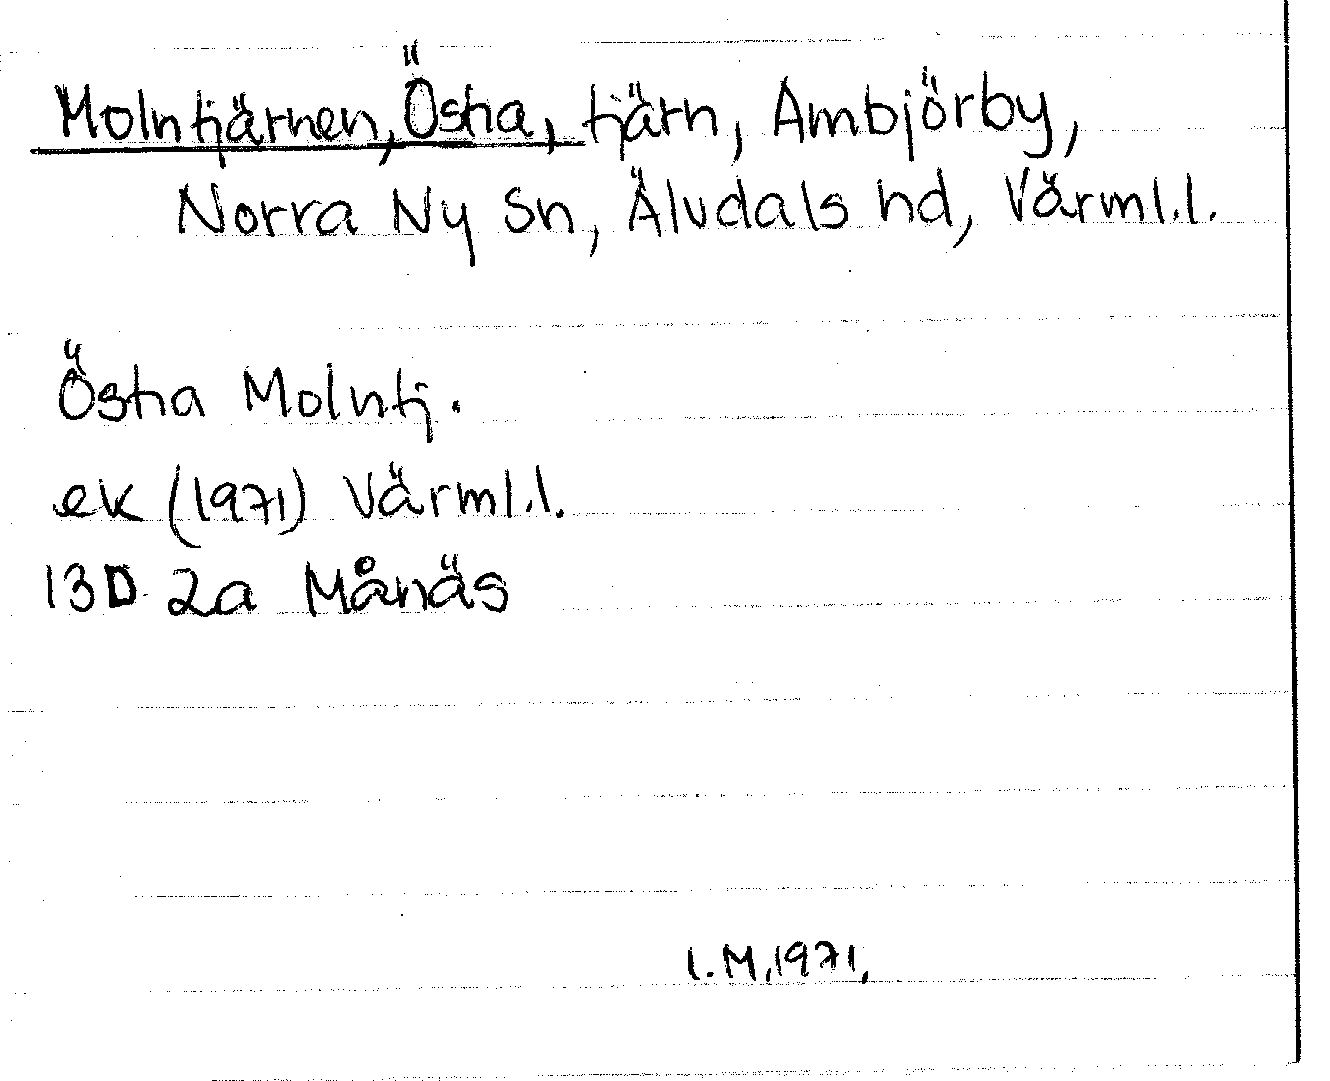 Molntjärnen, Östra, tjärn, Ambjörby,
Norra Ny Sn, Älvdals hd, Värml.l.
Östra Molntj.
ek (1971) Värml.l.
13D 2a Månäs
I.M, 1971,